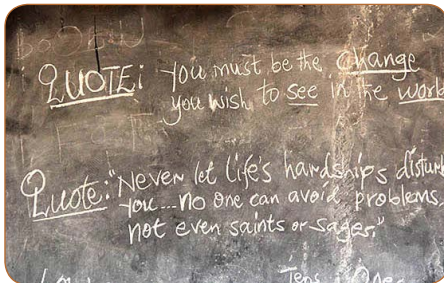 QUOTE: You must be the change
you wish to see in the worl
Quote: "Never let life's hardships disturb
you...no one can avoid problems,
not even saints or sages."
Tens Ones